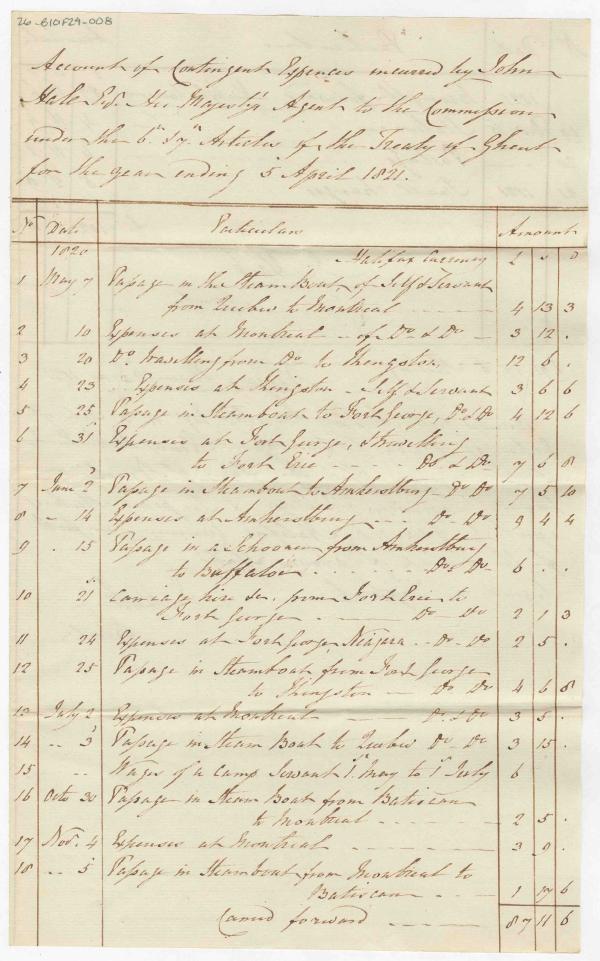 26-B10F29-008
Account of Contingent Expences incurred by John
Hale Esqr. His Majesty's Agent to the Commission
under the 6th & 7th Articles of the Treaty of Ghent
for the year ending 5 April 1821.
No Date Particulars Amount
1820 Halifax Currency £ s d
1 May 7 Passage in the Steam Boat of Self & Servant
from Quebec to Montreal 4 13 3
2 10 Expenses at Montreal - of Do & Do - 3 12 .
3 20 Do. travelling from Do to Kingston, 12 6 .
4 23 Expenses at Kingston - Self & Servant 3 6 6
5 25 Passage in Steamboat to Fort George, Do & Do 4 12 6
6 31 Expenses at Fort George, & travelling
to Fort Erie - - - - Do & Do 7 6 8
7 June 2 Passage in Steamboat to Amherstburg - Do Do 7 5 10
8 - 14 Expenses at Amherstburg - - - Do - Do 9 4 4
9 . 15 Passage in a Schooner from Amherstburg
to Buffaloe - - - - Do & Do - 6 . .
10 21 Carriage hire &c. from Fort Erie to
Fort George - - Do - Do 2 1 3
11 24 Expenses at Fort George, Niagara - - Do - Do 2 5 .
12 25 Passage in Steamboat from Fort George
to Kingston - Do Do 4 6 8
13 July 2 Expenses at Montreal - Do & Do 3 5 .
14 .. 3 Passage in Steam Boat to Quebec Do - Do 3 15 .
15 .. Wages of a Camp Servant 1st May to 1st July 6
16 Octo 30 Passage in Steam Boat from Batiscan
to Montreal - - - - 2 5 .
17 Novr. 4 Expenses at Montreal - - - 3 9 .
18 .. 5 Passage in Steamboat from Montreal to
Batiscan - - - 1 17 6
Carried forward - - - 87 11 6